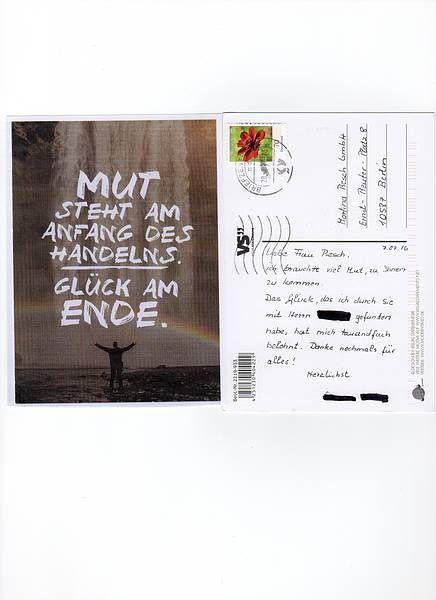 MUT
STEHT AM
ANFANG DES
HANDELNS.
GLÜCK AM
ENDE.
Martina Resch GmbH
Ernst-Reuter-Platz 8
10587 Berlin
7.07.16
Liebe Frau Resch,
ich brauchte viel Mut, zu Ihnen
zu kommen.
Das Glück, das ich durch sie
mit Herrn gefunden
habe, hat mich tausendfach
belohnt. Danke nochmals für
alles!
Herzlichst
VS
Best.-Nr. 2216-933